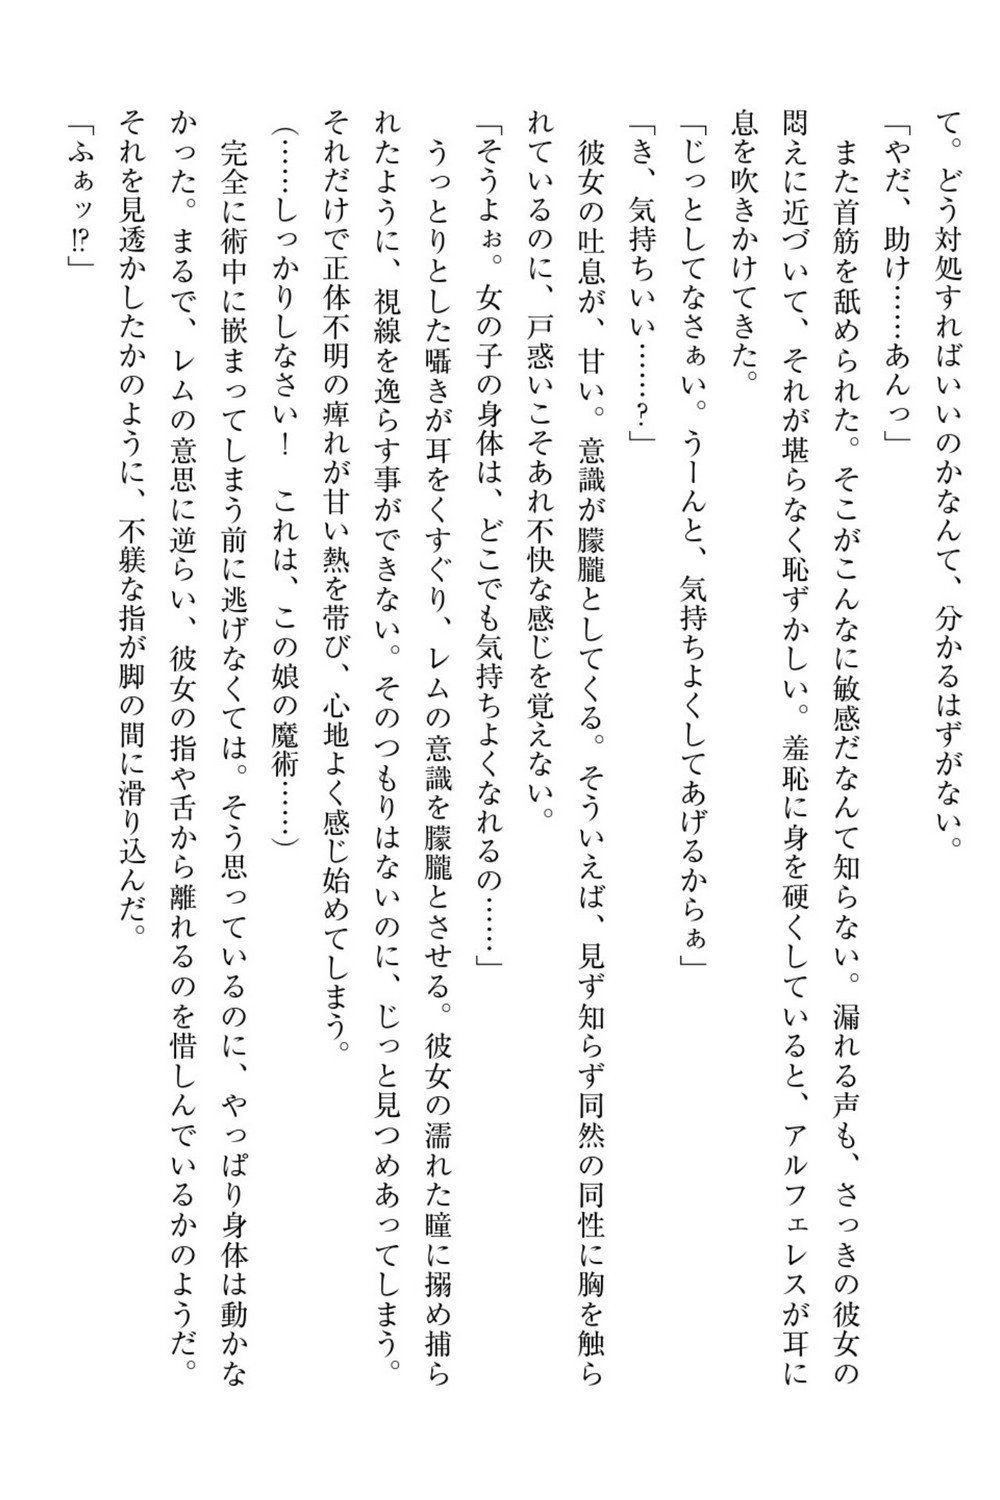 て。どう対処すればいいのかなんて、分かるはずがない。
「やだ、助け……あんっ」
また首筋を舐められた。そこがこんなに敏感だなんて知らない。漏れる声も、さっきの彼女の
悶えに近づいて、それが堪らなく恥ずかしい。羞恥に身を硬くしていると、アルフェレスが耳に
息を吹きかけてきた。
「じっとしてなさぁい。うーんと、気持ちよくしてあげるからぁ」
「き、気持ちいい……?」
彼女の吐息が、甘い。意識が朦朧としてくる。そういえば、見ず知らず同然の同性に胸を触ら
れているのに、戸惑いこそあれ不快な感じを覚えない。
「そうよぉ。女の子の身体は、どこでも気持ちよくなれるの……」
うっとりとした囁きが耳をくすぐり、レムの意識を朦朧とさせる。彼女の濡れた瞳に搦め捕ら
れたように、視線を逸らす事ができない。そのつもりはないのに、じっと見つめあってしまう。
それだけで正体不明の痺れが甘い熱を帯び、心地よく感じ始めてしまう。
(……しっかりしなさい!　これは、この娘の魔術……)
完全に術中に嵌まってしまう前に逃げなくては。そう思っているのに、やっぱり身体は動かな
かった。まるで、レムの意思に逆らい、彼女の指や舌から離れるのを惜しんでいるかのようだ。
それを見透かしたかのように、不躾な指が脚の間に滑り込んだ。
「ふぁッ!?」